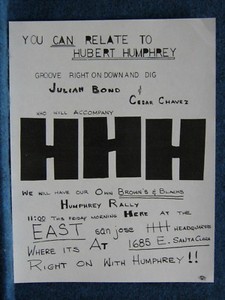 YOU CAN RELATE TO
HUBERT HUMPHREY
GROOVE RIGHT ON DOWN AND DIG
JULIAN BOND &
CESAR CHAVEZ
WHO WILL ACCOMPANY
HHH
WE WILL HAVE OUR OWN BROWN'S & BLACKS
HUMPHREY RALLY
11:00 THIS FRIDAY MORNING HERE AT THE
EAST san jose HHH HEADQUARTERS
WHERE ITS AT 1685 E. SANTA CLARA
RIGHT ON WITH HUMPHREY !!